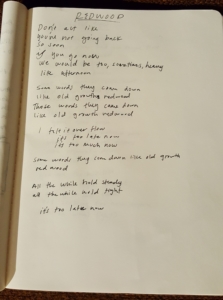 REDWOOD
Don't act like
you're not going back
So soon
if you go now
we would be too, sometimes, heavy
like afternoon
Some words they come down
like old growth redwood
Those words they come down
like old growth redwood
I talk it over now
it's too late now
it's too much now
some words they come down like old growth
redwood
All the while hold steady
all the while hold tight
it's too late now